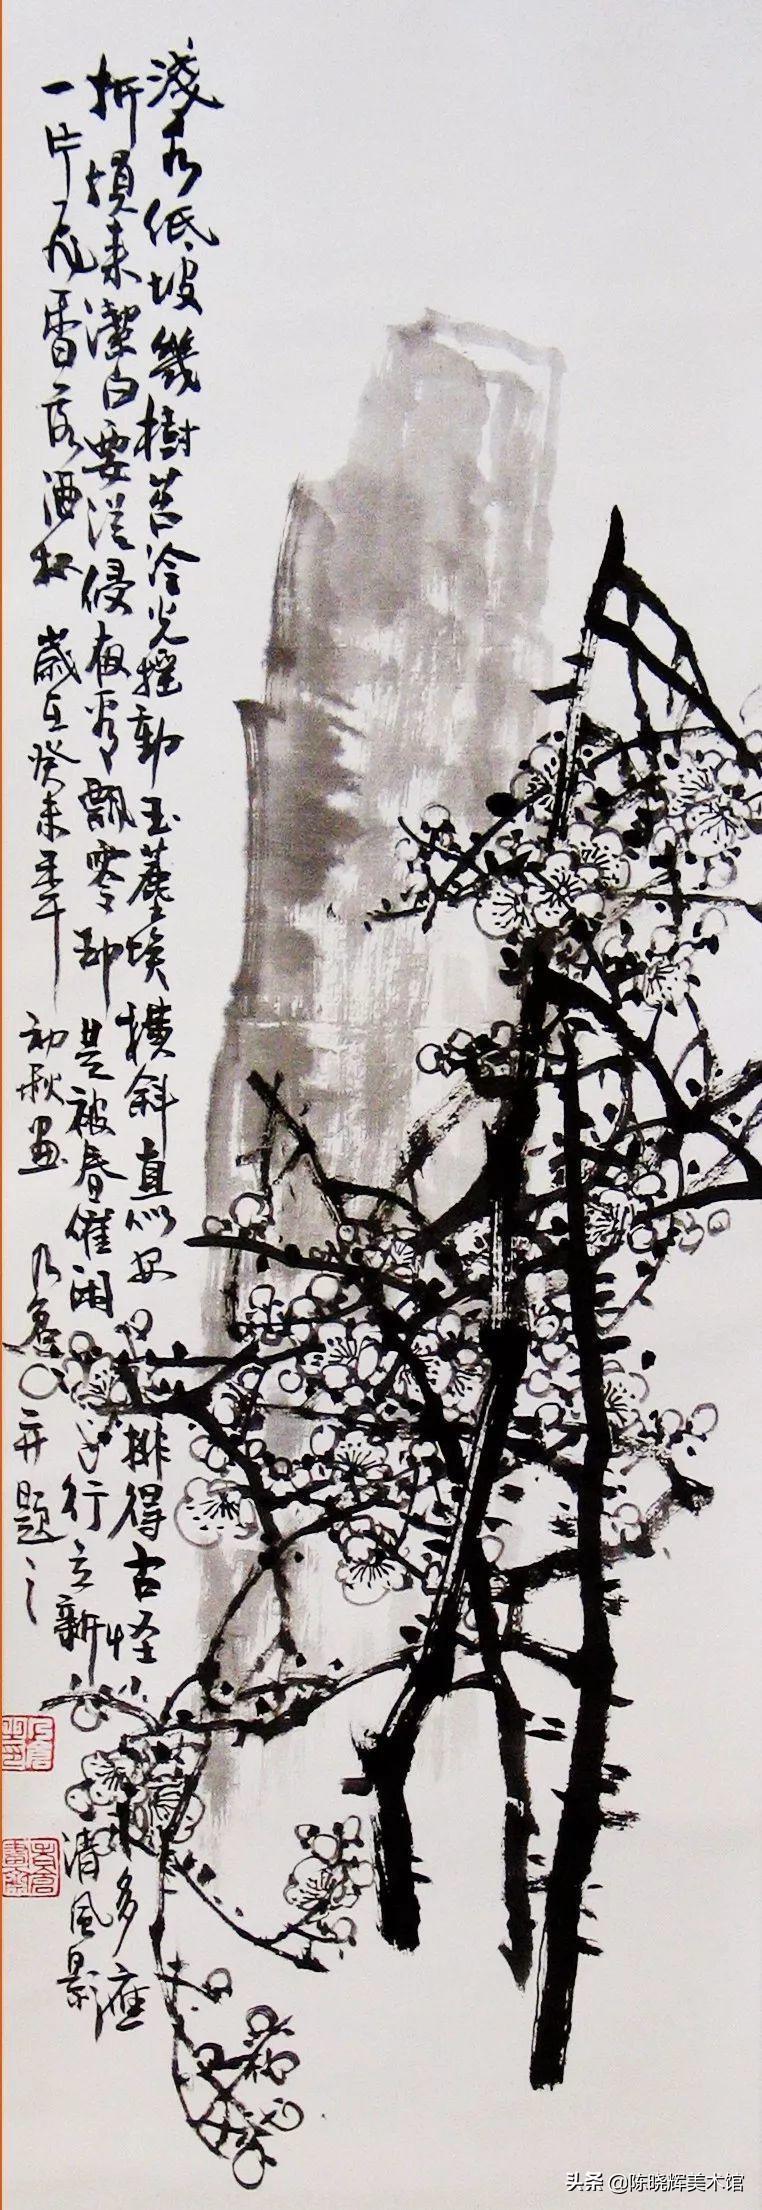 淺水低坡幾樹苔冷光搖動玉塵埃橫斜直似安排得古怪多應
折損来潔白要從侵夜看飄零却是被春催閒行立新清風影
一片飛香落酒杯 歲在癸未年初秋画 乃倉并題之
头条 @陈晓辉美术馆